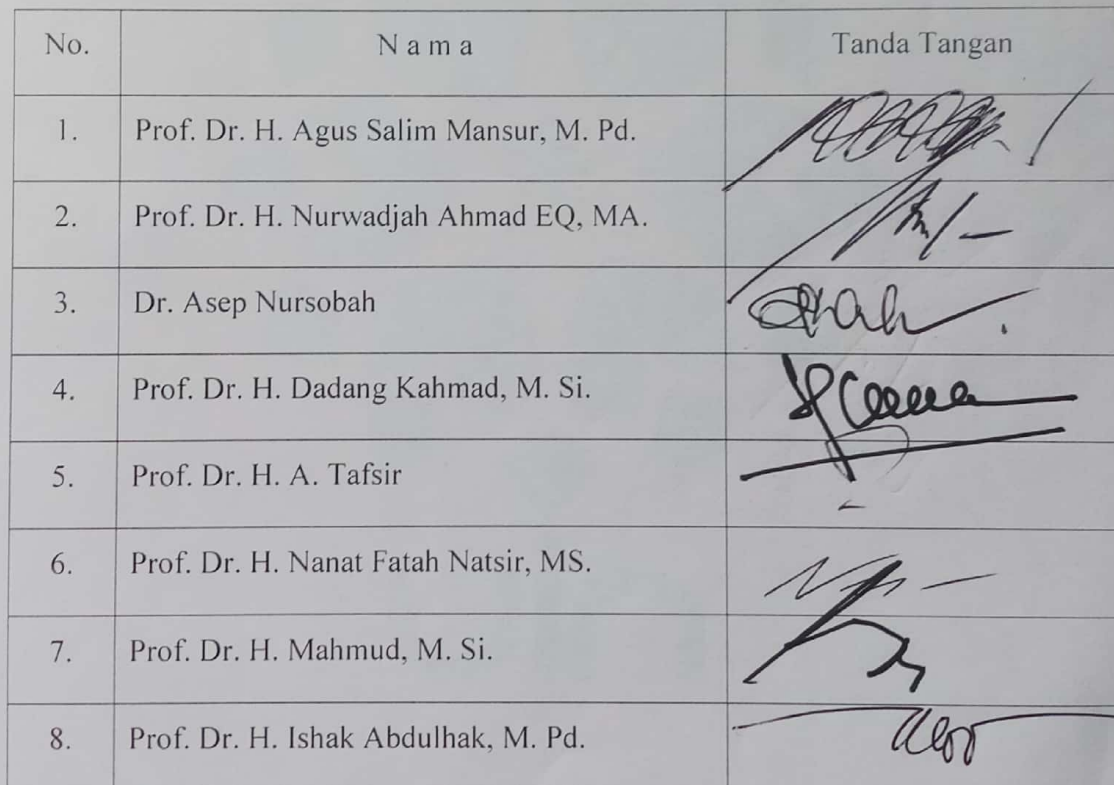 No. N a m a Tanda Tangan
1. Prof. Dr. H. Agus Salim Mansur, M. Pd.
2. Prof. Dr. H. Nurwadjah Ahmad EQ, MA.
3. Dr. Asep Nursobah
4. Prof. Dr. H. Dadang Kahmad, M. Si.
5. Prof. Dr. H. A. Tafsir
6. Prof. Dr. H. Nanat Fatah Natsir, MS.
7. Prof. Dr. H. Mahmud, M. Si.
8. Prof. Dr. H. Ishak Abdulhak, M. Pd.